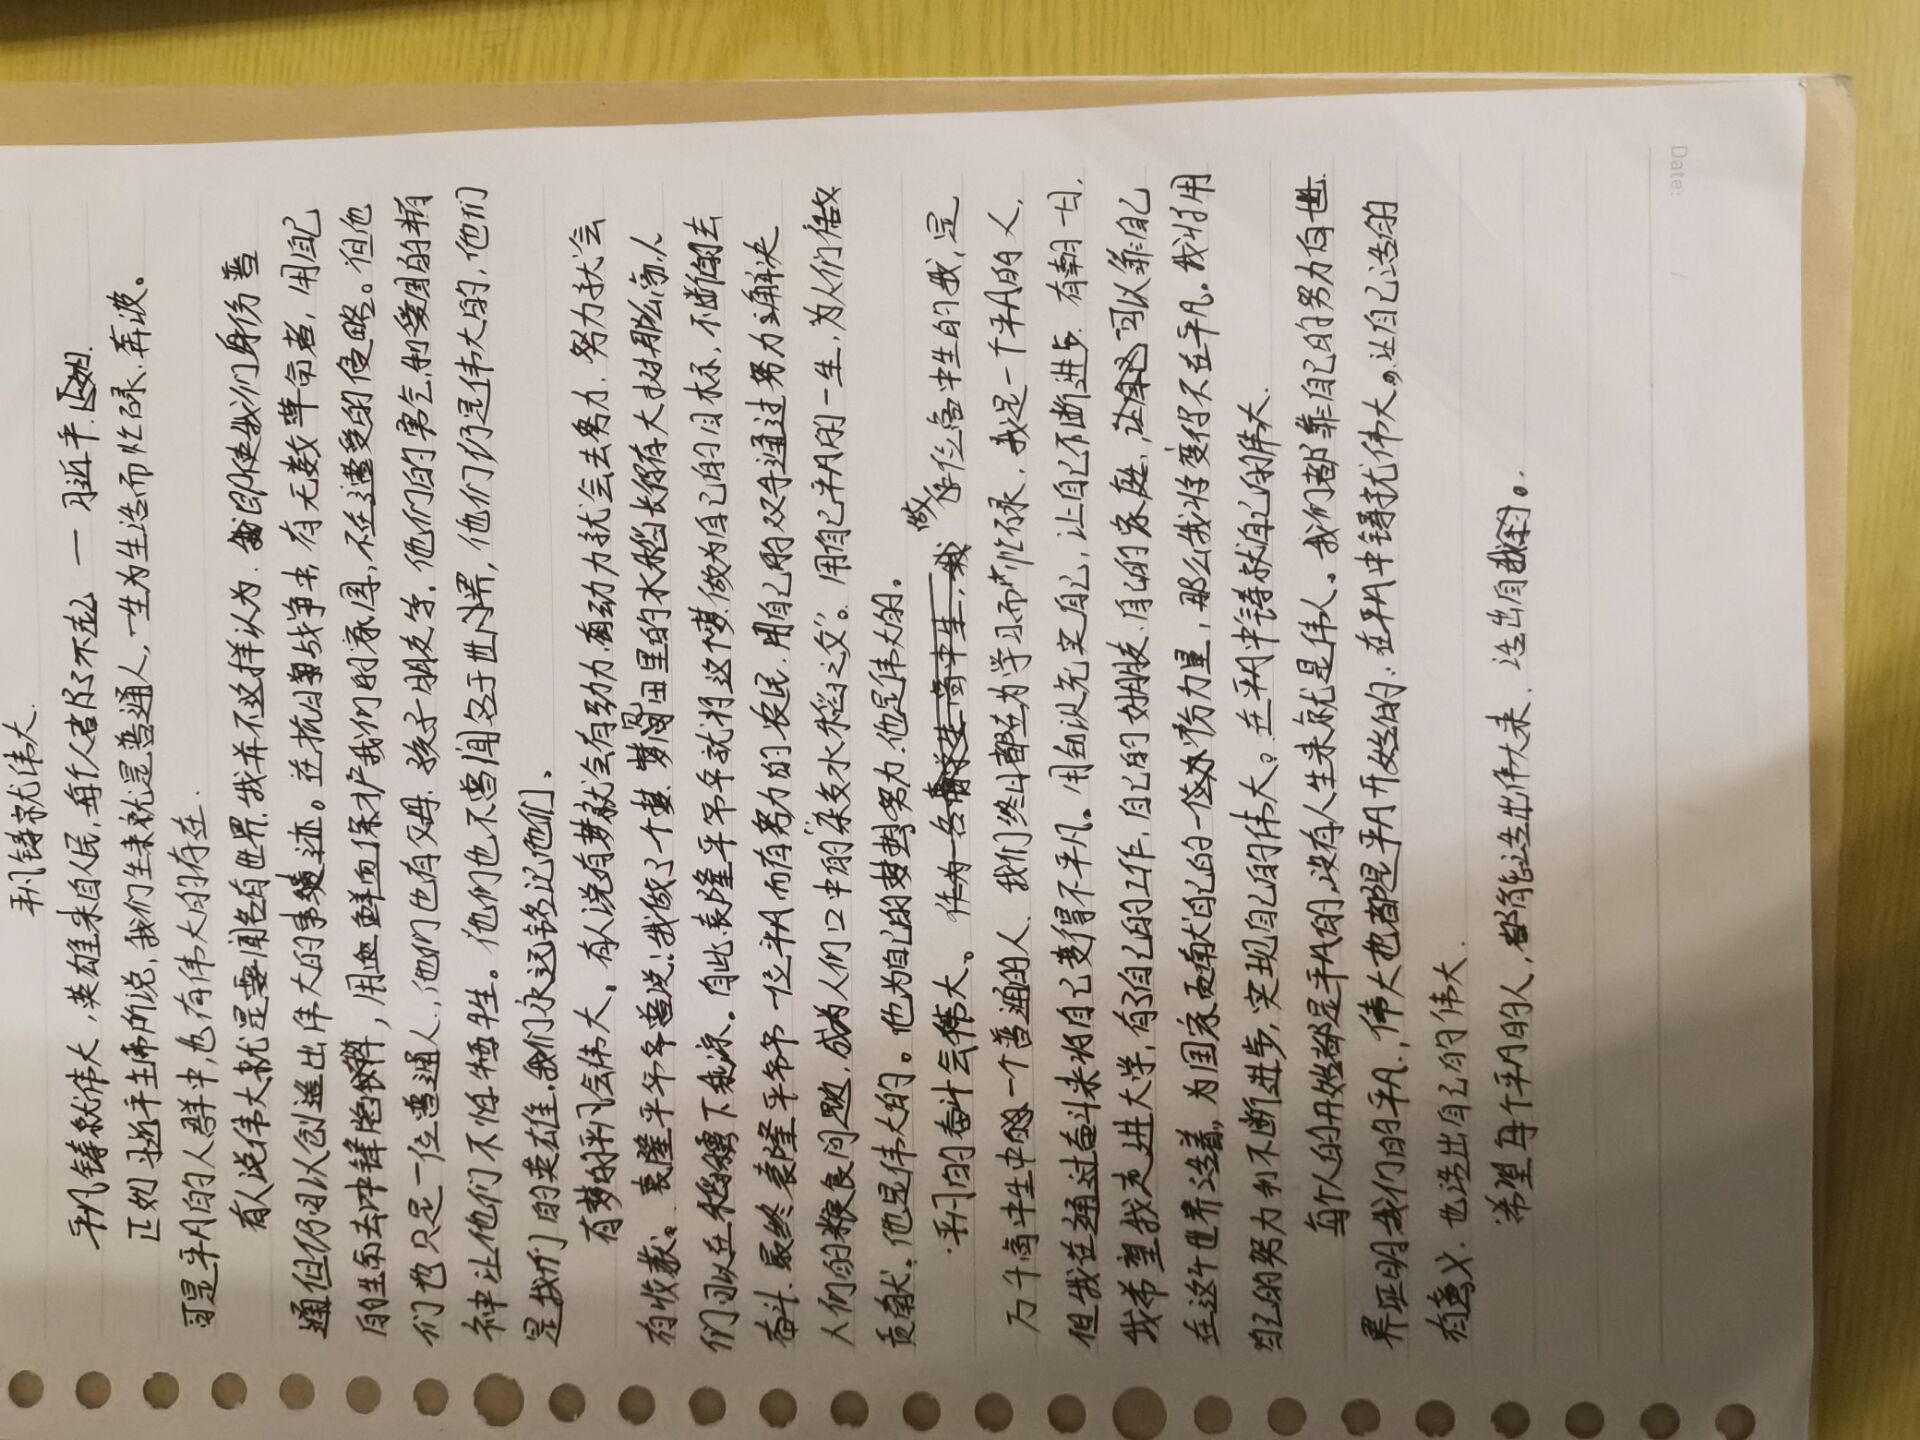 平凡铸就伟大
平凡铸就伟大,英雄来自人民,每个人都了不起 — 习近平.
正如习近平主席所说,我们生来就是普通人,一生为生活而忙碌、奔波。
可是平凡的人群中,也有伟大的存在.
有人说伟大就是要闻名与世界,我并不这样认为.即使我们身份普
通但仍可以创造出伟大的事迹。在抗日战争中,有无数革命者,用自己
的生命去冲锋陷阵,用血鲜血保护我们的家园,不在遭受的侵略。但他
们也只是一位普通人,他们也有父母、孩子、朋友等.他们的勇气和爱国的精
神让他们不怕牺牲。他们也不曾闻名于世界,他们仍是伟大的,他们
是我们的英雄,我们永远铭记他们.
有梦的平凡会伟大.有人说有梦就会有动力,有动力就会去努力,努力就会
有收获。袁隆平爷爷曾说:我做了个梦,梦见田里的水稻长得有大树那么高,人
们可以在稻穗下乘凉.自此,袁隆平爷爷就将这个梦,做为自己的目标,不断的去
奋斗.最终袁隆平爷爷一位平凡而有努力的农民.用自己的双手通过努力解决
人们的粮食问题,成为人们口中的“杂交水稻之父”。用自己平凡的一生,为人们做
贡献.他是伟大的。他为自己的梦努力.他是伟大的.
平凡的奋斗会伟大。作为一名高中生,我 做一位高中生的我,是
万千高中生中的一个普通的人.我们终日都在为学习而忙碌.我是一个平凡的人,
但我在通过奋斗来将自己变得不平凡.用知识充实自己,让自己不断进步.有朝一日,
我希望我走进大学,有了自己的工作,自己的好朋友,自己的家庭,可以靠自己
在这个世界活着,为国家贡献自己的一份力量,那么我将变得不在平凡.我将用
自己的努力和不断进步,实现自己的伟大.在平凡中铸就自己的伟大.
每个人的开始都是平凡的,没有人生来就是伟人.我们都靠自己的努力向世
界证明我们的平凡,伟大也都是平凡开始的.在平凡中铸就伟大.让自己活的
有意义.也活出自己的伟大.
希望每个平凡的人,都能活出伟大来、活出自我。
Date: /